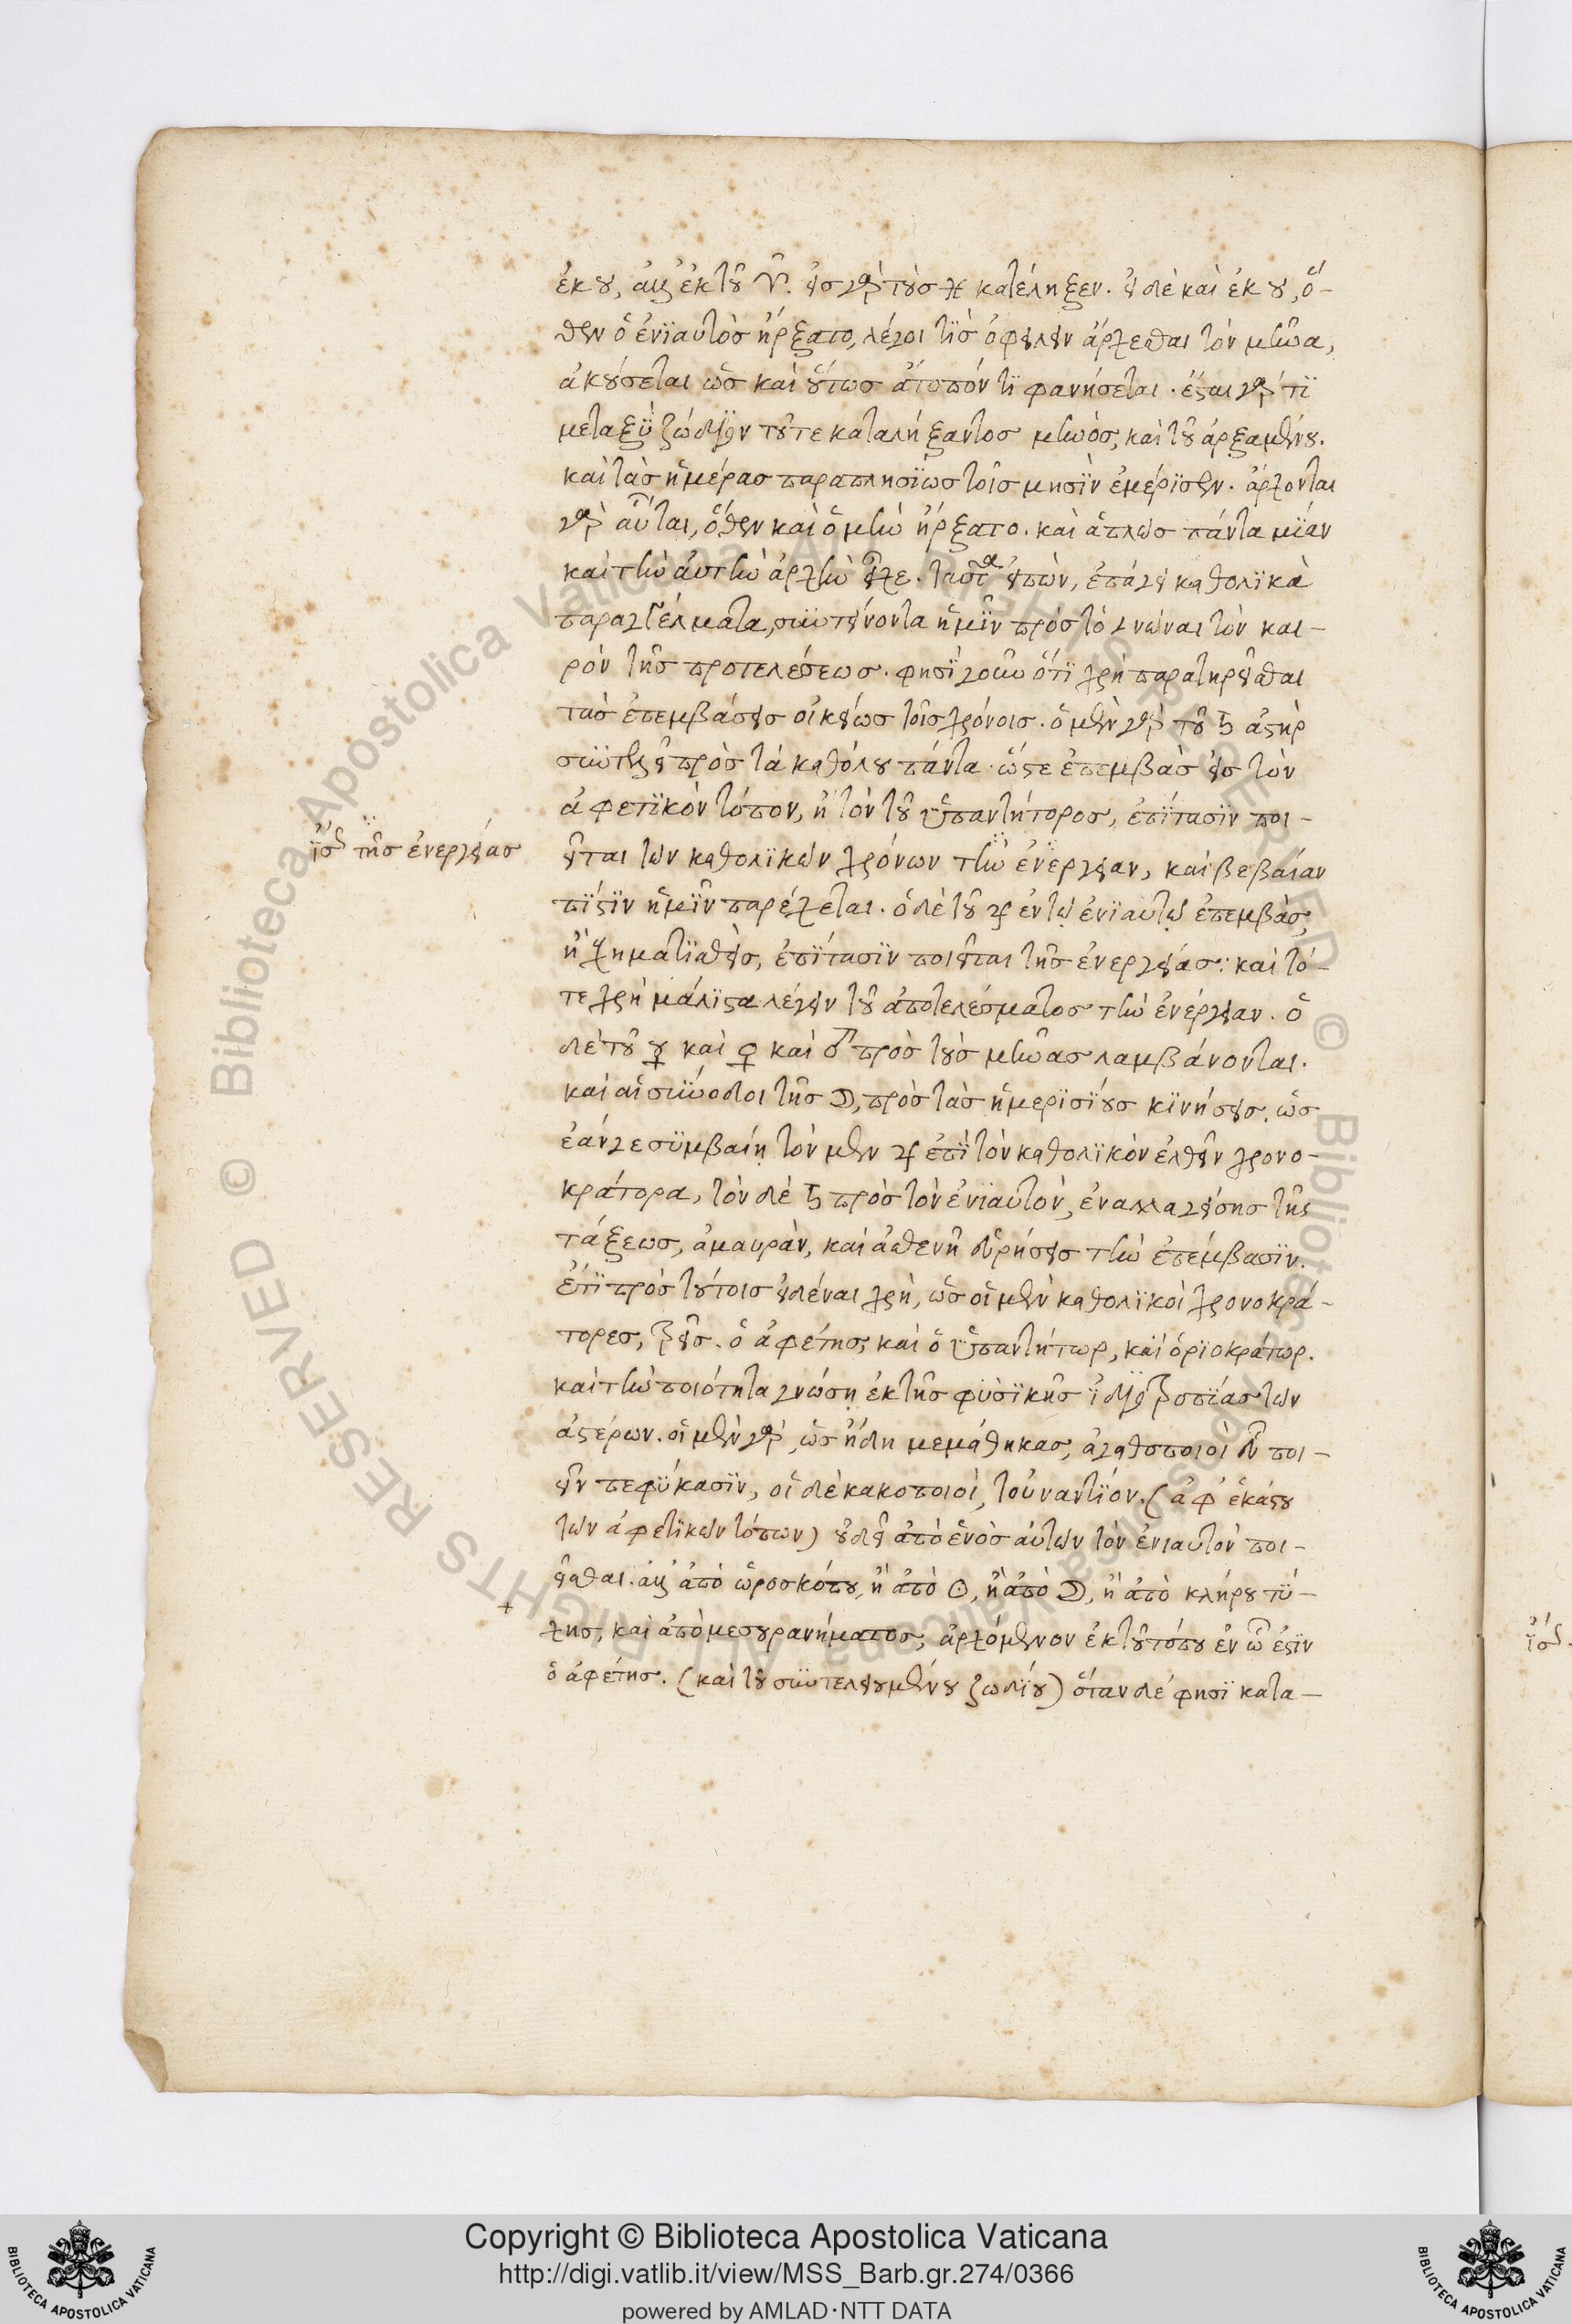 ἐκ ♉, ἀλλ' ἐκ τοῦ ♈. εἰς γὰρ τοὺς ♓ κατέληξεν. εἰ δὲ καὶ ἐκ ♉, ὅ-
θεν ὁ ἐνϊαυτὸς ἤρξατο, λέγοι τῒς ὀφείλειν ἄρχεσθαι τὸν μῆνα,
ἀκούσεται ὡς καὶ οὕτως ἄτοπόν τϊ φανήσεται. ἔσται γάρ τϊ
μεταξῢ ζώδιον τοῦτε καταλήξαντος μηνὸς, καὶ τοῦ ἀρξαμένου.
καὶ τὰς ἡμέρας παραπλησΐως τοῖς μησῒν ἐμέρϊσεν. ἄρχονται
γὰρ αὗται, ὅθεν καὶ ὁ μὴν ἤρξατο. καὶ ἁπλῶς πάντα μΐαν
καὶ τὴν αὐτὴν ἀρχὴν ἔχει. ταῦτα εἰπὼν, ἐπάγει καθολϊκὰ
παραγγέλματα, συντείνοντα ἡμῖν πρὸς τὸ γνῶναι τὸν και-
ρὸν τῆς προτελέσεως. φησῒ γοῦν ὅτϊ χρὴ παρατηρεῖσθαι
τὰς ἐπεμβάσεις οἰκείως τοῖς χρόνοις. ὁ μὲν γὰρ τοῦ ♄ ἀστὴρ
συντελεῖ πρὸς τὰ καθόλου πάντα. ὥστε ἐπεμβὰς εἰς τὸν
ἀφετϊκὸν τόπον, ἢ τὸν τοῦ ὑπαντήτορος, ἐπΐτασϊν ποι-
εῖται τῶν καθολϊκῶν χρόνων τὴν ἐνέργειαν, καὶ βεβαίαν
ἴσ. τῆς ἐνεργείας
πΐστϊν ἡμῖν παρέχεται. ὁ δὲ τοῦ ♃ ἐν τῷ ἐνϊαυτῷ ἐπεμβὰς,
ἢ σχηματϊσθεὶς, ἐπΐτασϊν ποιεῖται τῆς ἐνεργείας: καὶ τό-
τε χρὴ μάλϊστα λέγειν τοῦ ἀποτελέσματος τὴν ἐνέργειαν. ὁ
δὲ τοῦ ☿ καὶ ♀ καὶ ♂ πρὸς τοὺς μῆνας λαμβάνονται.
καὶ αἱ σύνοδοι τῆς ☽, πρὸς τὰς ἡμερϊσΐους κϊνήσεις. ὡς
ἐάν γε συμβαίη τὸν μὲν ♃ ἐπῒ τὸν καθολϊκὸν ἐλθεῖν χρονο-
κράτορα, τὸν δὲ ♄ πρὸς τὸν ἐνϊαυτὸν, ἐναλλαγείσης τῆς
τάξεως, ἀμαυρὰν, καὶ ἀσθενῆ εὑρήσεις τὴν ἐπέμβασϊν.
ἔτϊ πρὸς τούτοις εἰδέναι χρὴ, ὡς οἱ μὲν καθολϊκοὶ χρονοκρά-
τορες, τρεῖς. ὁ ἀφέτης, καὶ ὁ ὑπαντήτωρ, καὶ ὁρϊοκράτωρ.
καὶ τὴν ποιότητα γνώσῃ ἐκ τῆς φϋσϊκῆς ἰδιοτροπΐας τῶν
ἀστέρων. οἱ μὲν γὰρ, ὡς ἤδη μεμάθηκας, ἀγαθοποιοὶ εὖ ποι-
εῖν πεφύκασϊν, οἱ δὲ κακοποιοὶ, τοὐναντΐον. (ἀφ' ἑκάστου
τῶν ἀφετϊκῶν τόπων) οὐ δεῖ ἀπὸ ἑνὸς αὐτῶν τὸν ἐνιαυτὸν ποι-
εῖσθαι. ἀλλ' ἀπὸ ὡροσκόπου, ἢ ἀπὸ ☉, ἢ ἀπὸ ☽, ἢ ἀπὸ κλήρου τύ-
+ χης, καὶ ἀπὸ μεσουρανήματος, ἀρχόμενον ἐκ τοῦ τόπου ἐν ᾧ ἐστϊν
ὁ ἀφέτης. (καὶ τοῦ συντελουμένου ζωδΐου) ὅταν δέ φησϊ κατα-
ἴσ.
Copyright © Biblioteca Apostolica Vaticana
http://digi.vatlib.it/view/MSS_Barb.gr.274/0366
powered by AMLAD·NTT DATA
BIBLIOTECA APOSTOLICA VATICANA
BIBLIOTECA APOSTOLICA VATICANA